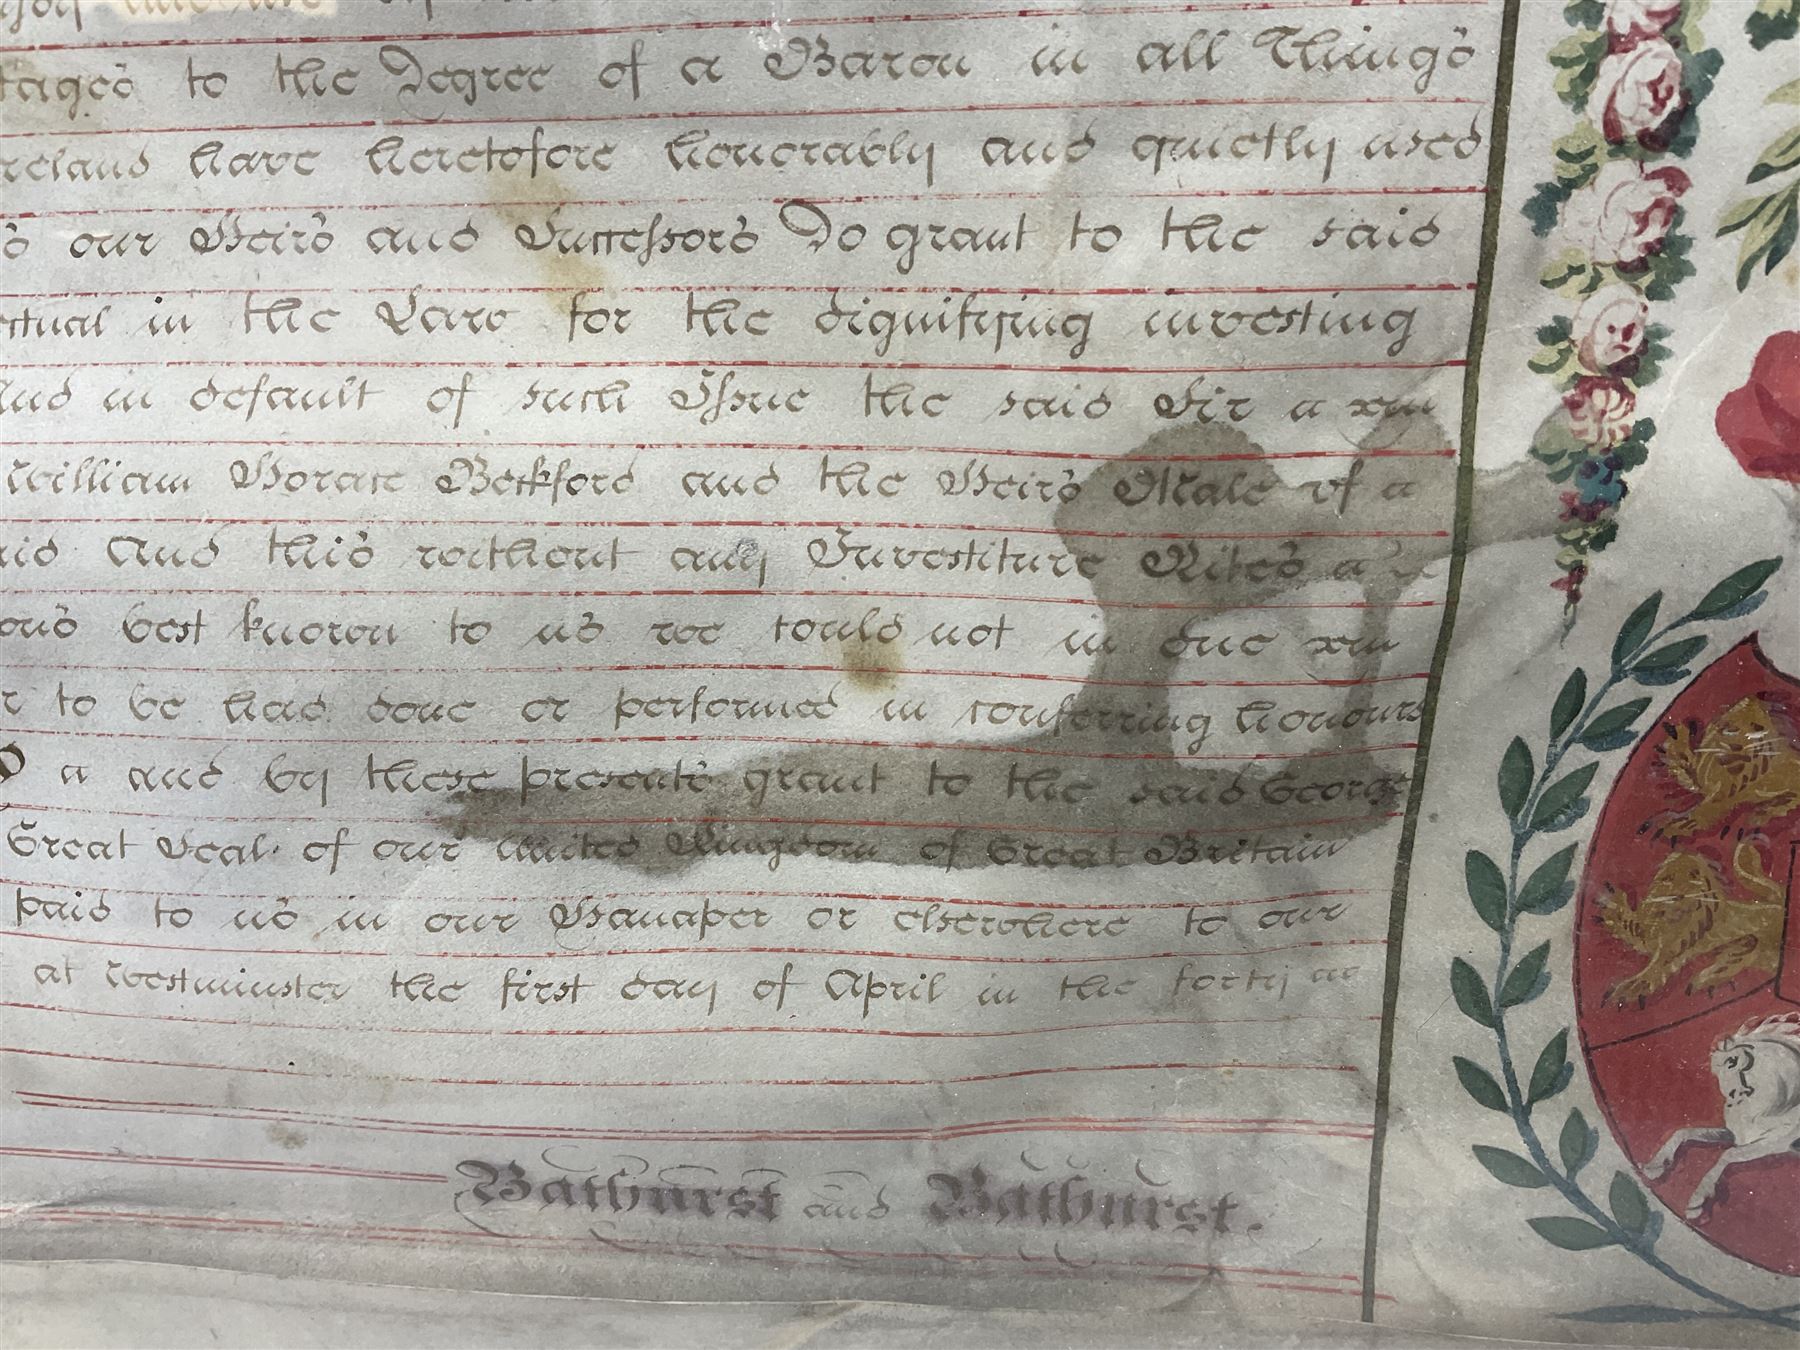 tages to the Degree of a Baron in all Things
reland have heretofore honorably and quietly used
s our Heirs and Successors Do grant to the said
ectual in the Law for the dignifying investing
And in default of such Issue the said Sir a xm
William Horace Beckford and the Heirs Male of a
aid And this without any Investiture Rites a
ons best known to us wee could not in due xm
r to be had done or performed in conferring honours
D a and by these presents grant to the said George
Great Seal of our United Kingdom of Great Britain
paid to us in our Hanaper or elsewhere to our
at Westminster the first day of April in the forty
Bathurst and Bathurst.